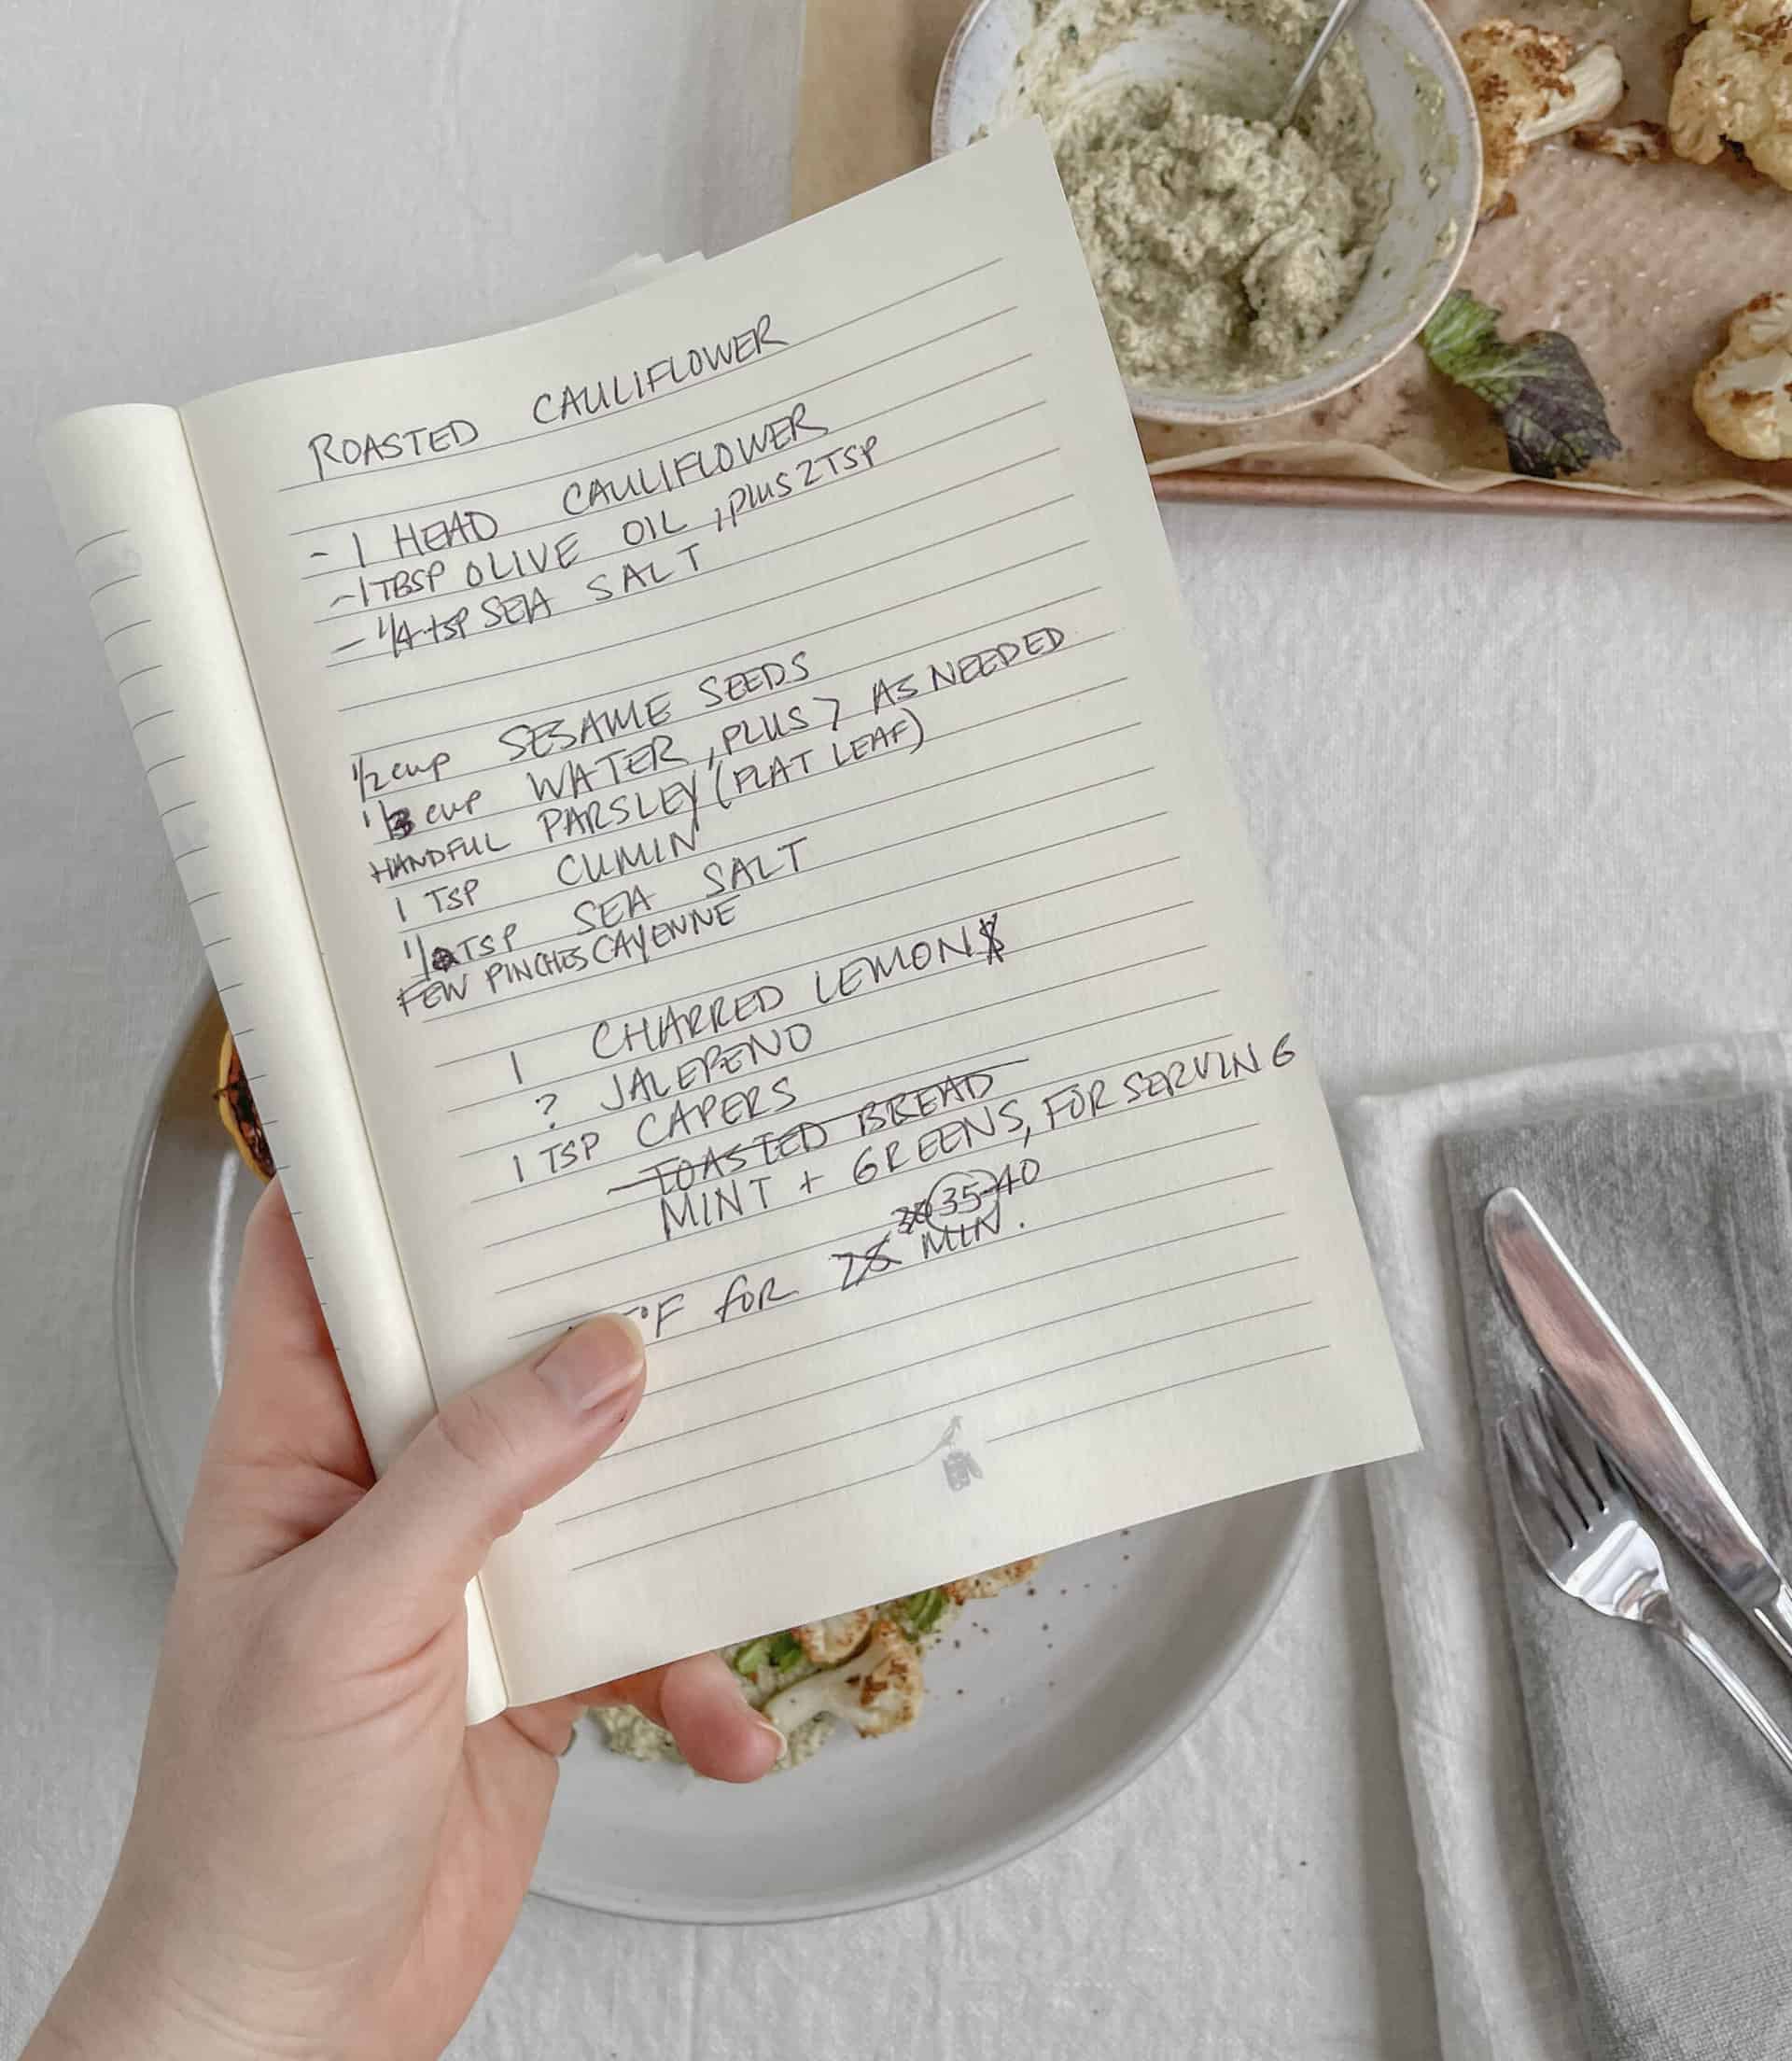 ROASTED CAULIFLOWER
- 1 HEAD CAULIFLOWER
- 1 TBSP OLIVE OIL, plus 2 TSP
- 1/4 tsp SEA SALT
1/2 cup SESAME SEEDS
1/3 cup WATER, PLUS > AS NEEDED
HANDFUL PARSLEY (FLAT LEAF)
1 TSP CUMIN
TSP SEA SALT
FEW PINCHES CAYENNE
1 CHARRED LEMON
? JALEPENO
1 TSP CAPERS
TOASTED BREAD
MINT + GREENS, FOR SERVING
35-40
°F for MIN.